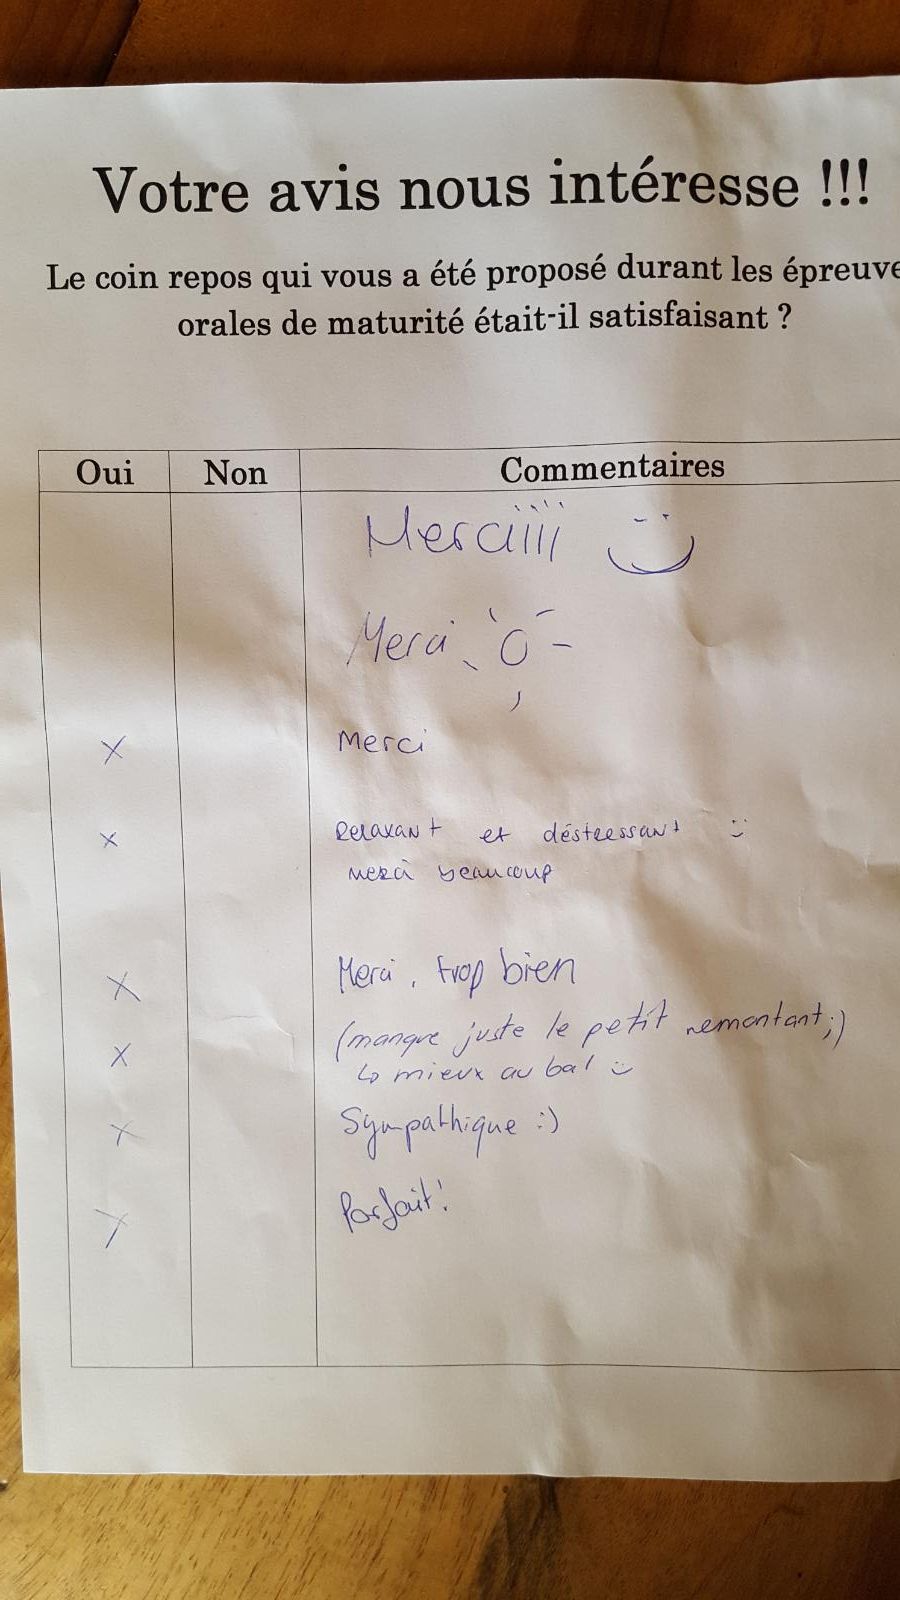 Votre avis nous intéresse !!!
Le coin repos qui vous a été proposé durant les épreuve
orales de maturité était-il satisfaisant ?
Oui Non Commentaires
Merciiiii
Merci
X Merci
X Relaxant et déstressant :)
merci beaucoup
X Merci, trop bien
X (manque juste le petit remontant ;)
↳ mieux au bal :)
X Sympathique :)
X Parfait !